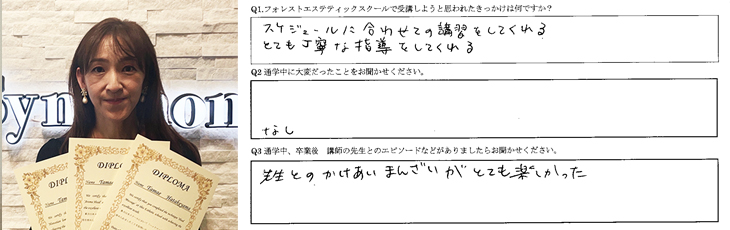 Symphon
DIPLOMA
DIPLOMA
DIPLOMA
Name Tamae
Q1.フォレストエステティックスクールで受講しようと思われたきっかけは何ですか？
スケジュールに合わせての講習をしてくれる
とても丁寧な指導をしてくれる
Q2 通学中に大変だったことをお聞かせください。
なし
Q3 通学中、卒業後 講師の先生とのエピソードなどがありましたらお聞かせください。
先生とのかけあいまんざいがとても楽しかった